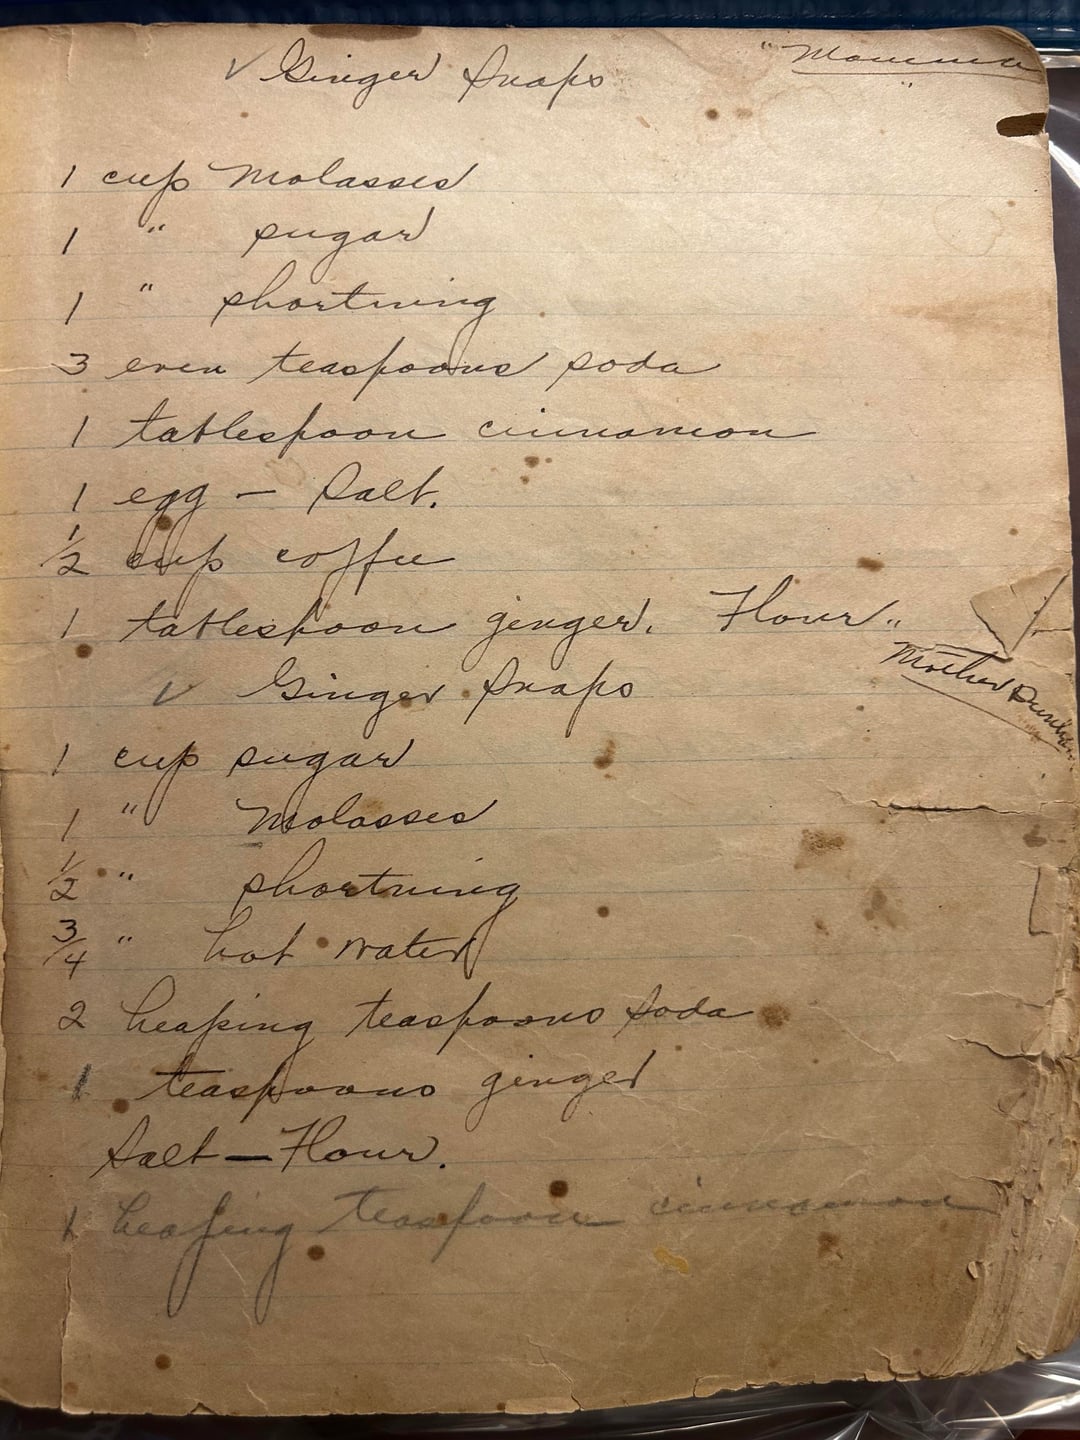 ✓ Ginger Snaps "Momma"
1 cup Molasses
1 " sugar
1 " shortning
3 even teaspoons soda
1 tablespoon cinnamon
1 egg — Salt.
1/2 cup coffee
1 tablespoon ginger. Flour..
Mother
✓ Ginger Snaps
1 cup sugar
1 " Molasses
1/2 " shortning
3/4 " hot water
2 heaping teaspoons soda
1 teaspoons ginger
Salt — Flour.
1 heaping teaspoon cinnamon